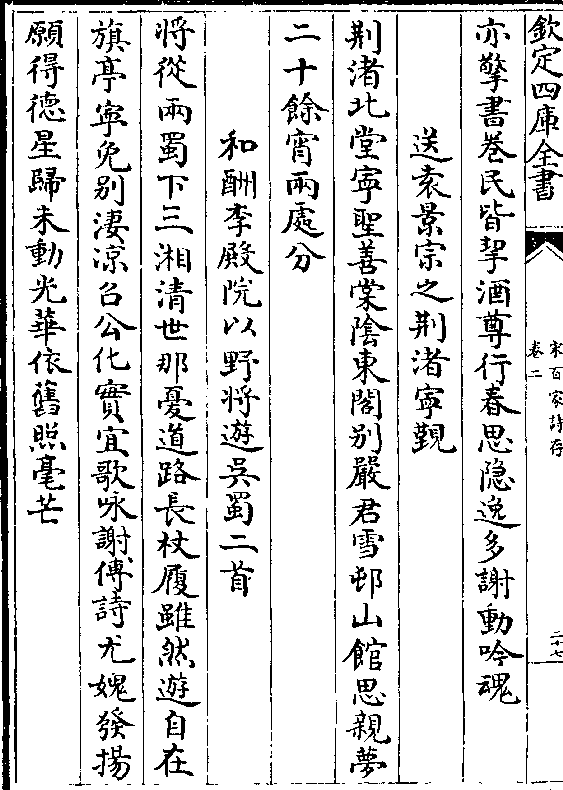 欽定四庫全書
宋百家詩存
卷二
二十七
亦擎書卷民皆挈酒尊行春思隐逸多謝動吟魂
送袁景宗之荆渚寧覲
荆渚北堂寧聖善棠隂東閣别嚴君雪邨山館思親夢
二十餘宵兩處分
和酬李殿院以野將遊吳蜀二首
將從兩蜀下三湘清世那憂道路長杖履雖然遊自在
旗亭寜免别淒涼召公化實宜歌咏謝傅詩尤媿發揚
願得德星歸未動光華依舊照毫芒